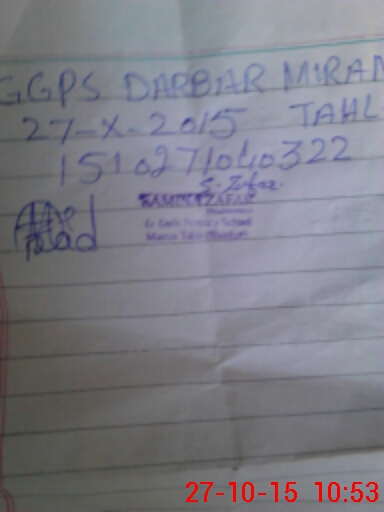 GGPS DARBAR MIRAN
27-X-2015 TAHL
1510271040322
S. Zafar.
SAMINA ZAFAR
G. Girls Primary School
27-10-15 10:53